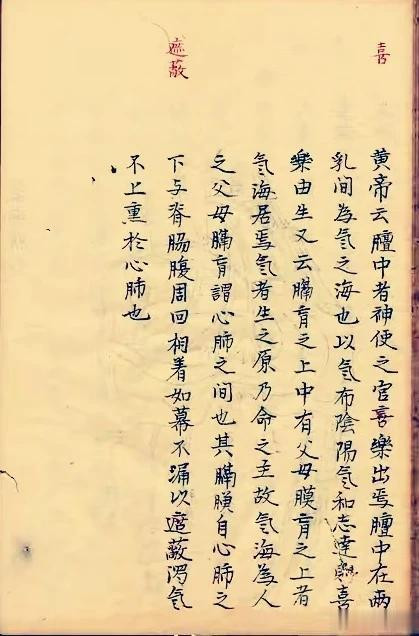 喜
黄帝云膻中者神使之官喜樂出焉膻中在兩
乳間為氣之海也以氣布陰陽氣和志達與喜
樂由生又云膈肓之上中有父母膜肓之上者
氣海居焉氣者生之原乃命之主故氣海為人
之父母膈肓謂心肺之間也其膈膜自心肺之
下与脊腸腹周回相着如幕不漏以遮蔽濁氣
不上熏於心肺也
遮蔽